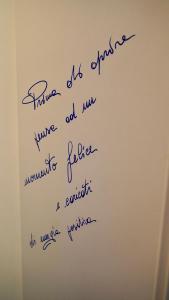 Prima di aprire
pensa ad un
momento felice
e caricati
di energia positiva